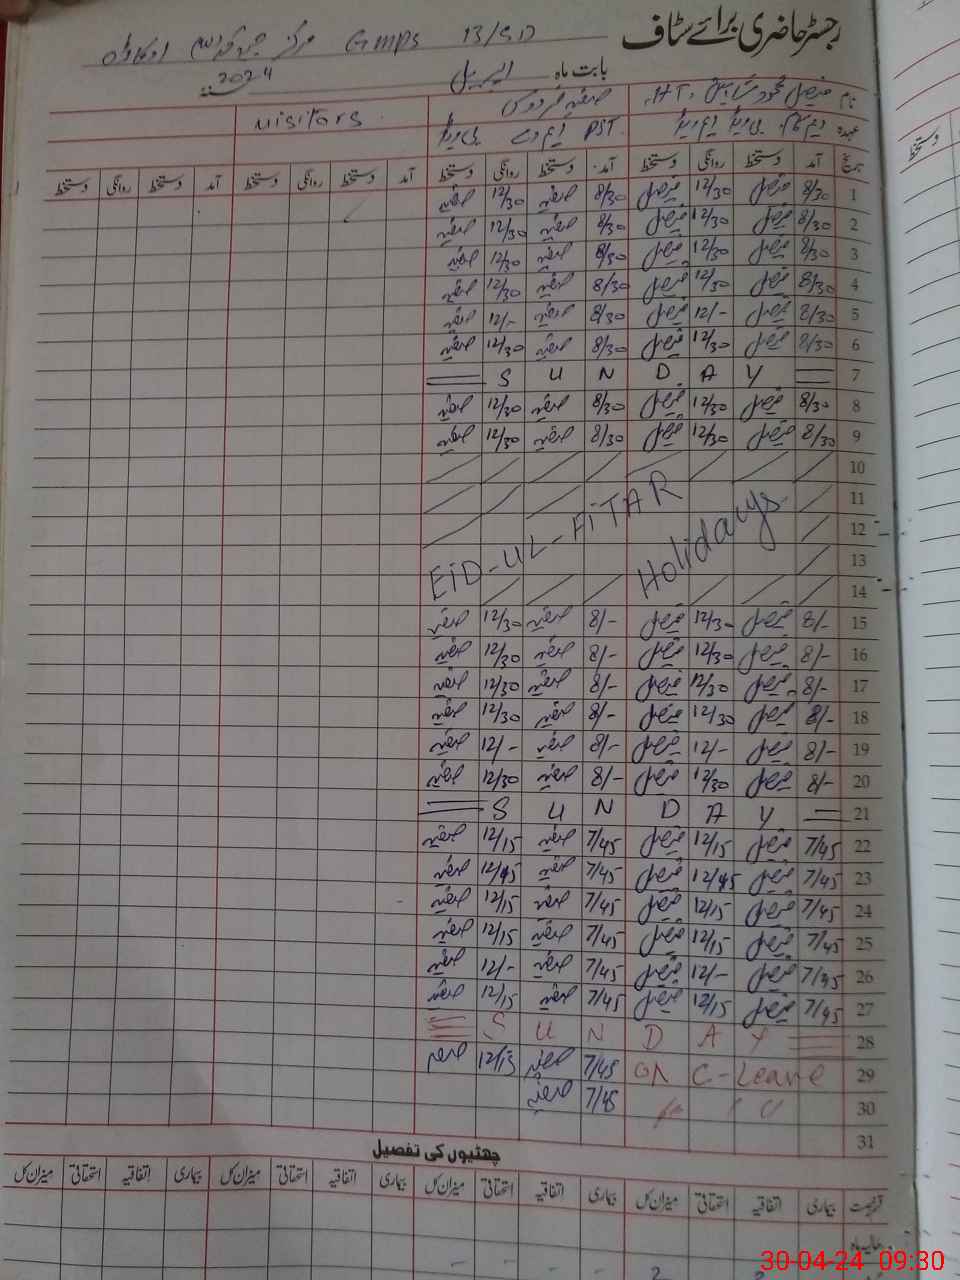 رجسٹر حاضری برائے سٹاف
GMPS 13/SP مرکز
بابت ماہ اپریل 2024
نام فیصل محمود HT
عہدہ PST
Visitors
تاریخ آمد دستخط روانگی دستخط آمد دستخط روانگی دستخط آمد دستخط روانگی دستخط آمد دستخط روانگی دستخط
1 8/30 فیصل 12/30 فیصل 8/30 صفیہ 12/30 صفیہ
2 8/30 فیصل 12/30 فیصل 8/30 صفیہ 12/30 صفیہ
3 8/30 فیصل 12/30 فیصل 8/30 صفیہ 12/30 صفیہ
4 8/30 فیصل 12/30 فیصل 8/30 صفیہ 12/30 صفیہ
5 8/30 فیصل 12/- فیصل 8/30 صفیہ 12/- صفیہ
6 8/30 فیصل 12/30 فیصل 8/30 صفیہ 12/30 صفیہ
7 SUNDAY
8 8/30 فیصل 12/30 فیصل 8/30 صفیہ 12/30 صفیہ
9 8/30 فیصل 12/30 فیصل 8/30 صفیہ 12/30 صفیہ
10
11
12
13
14
EID-UL-FITAR Holidays
15 8/- فیصل 12/30 فیصل 8/- صفیہ 12/30 صفیہ
16 8/- فیصل 12/30 فیصل 8/- صفیہ 12/30 صفیہ
17 8/- فیصل 12/30 فیصل 8/- صفیہ 12/30 صفیہ
18 8/- فیصل 12/30 فیصل 8/- صفیہ 12/30 صفیہ
19 8/- فیصل 12/- فیصل 8/- صفیہ 12/- صفیہ
20 8/- فیصل 12/30 فیصل 8/- صفیہ 12/30 صفیہ
21 SUNDAY
22 7/45 فیصل 12/15 فیصل 7/45 صفیہ 12/15 صفیہ
23 7/45 فیصل 12/45 فیصل 7/45 صفیہ 12/45 صفیہ
24 7/45 فیصل 12/15 فیصل 7/45 صفیہ 12/15 صفیہ
25 7/45 فیصل 12/15 فیصل 7/45 صفیہ 12/15 صفیہ
26 7/45 فیصل 12/- فیصل 7/45 صفیہ 12/- صفیہ
27 7/45 فیصل 12/15 فیصل 7/45 صفیہ 12/15 صفیہ
28 SUNDAY
29 ON C-Leave 7/45 صفیہ 12/15 صفیہ
30 7/45 صفیہ
31
چھٹیوں کی تفصیل
قسم رخصت بیماری اتفاقیہ استحقاقی میزان کل بیماری اتفاقیہ استحقاقی میزان کل بیماری اتفاقیہ استحقاقی میزان کل بیماری اتفاقیہ استحقاقی میزان کل
حالیہ ماہ
30-04-24 09:30
دستخط